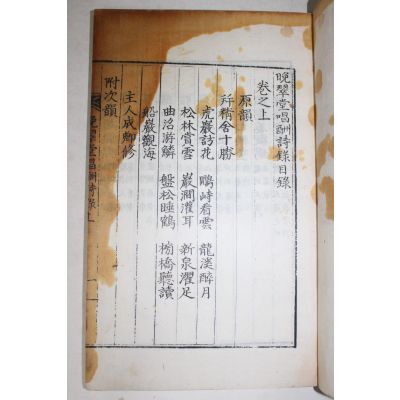 晩翠堂唱酬詩錄目錄
卷之上
原韻
幷精舍十勝
虎巖訪花　鵰峙看雲　龍溪醉月
松林賞雪　巖澗灌耳　新泉濯足
曲沼游鱗　盤松睡鶴　樹橋聽讀
船巖觀海
主人成卿修
附次韻
晩翠堂唱酬詩錄